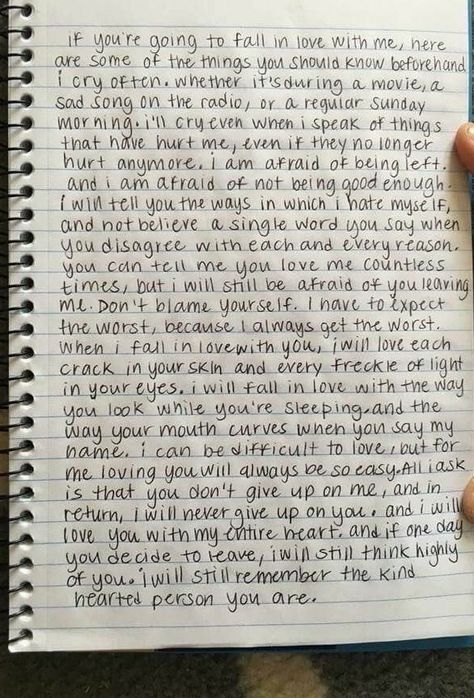 if you're going to fall in love with me, here
are some of the things you should know beforehand
i cry often. whether it's during a movie, a
sad song on the radio, or a regular sunday
morning. i'll cry even when i speak of things
that have hurt me, even if they no longer
hurt anymore. i am afraid of being left.
and i am afraid of not being good enough.
i will tell you the ways in which i hate myself,
and not believe a single word you say when
you disagree with each and every reason.
you can tell me you love me countless
times, but i will still be afraid of you leaving
me. Don't blame yourself. I have to expect
the worst, because I always get the worst.
when i fall in love with you, i will love each
crack in your skin and every freckle of light
in your eyes. i will fall in love with the way
you look while you're sleeping. and the
way your mouth curves when you say my
name. i can be difficult to love, but for
me loving you will always be so easy. All i ask
is that you don't give up on me, and in
return, i will never give up on you. and i will
love you with my entire heart. and if one day
you decide to leave, i will still think highly
of you. i will still remember the kind
hearted person you are.